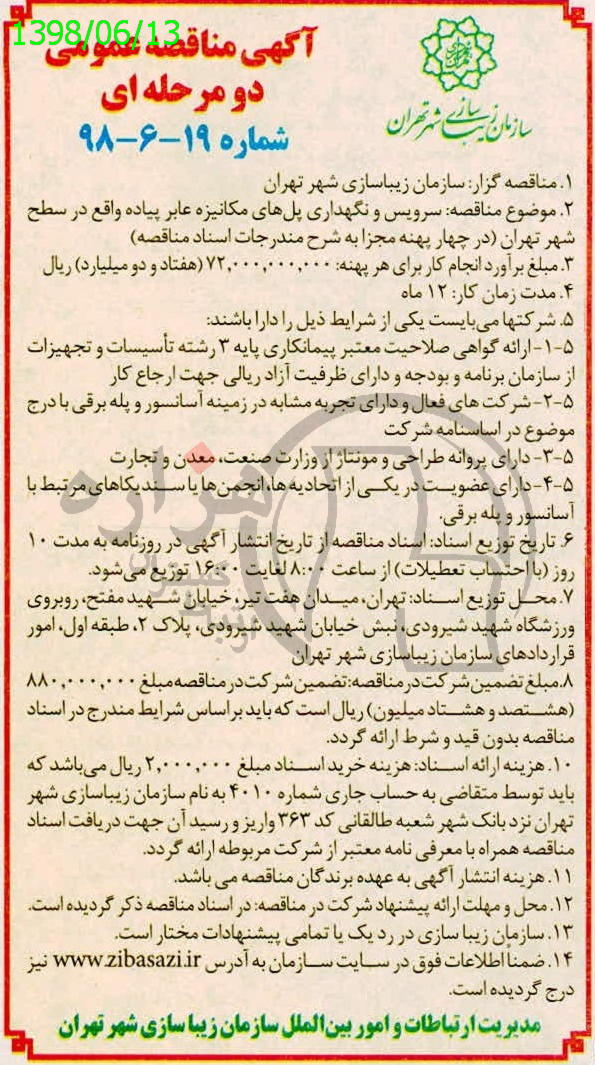 1398/06/13
سازمان زیباسازی شهر تهران
آگهی مناقصه عمومی
دو مرحله ای
شماره ۱۹-۶-۹۸
۱. مناقصه گزار: سازمان زیباسازی شهر تهران
۲. موضوع مناقصه: سرویس و نگهداری پل‌های مکانیزه عابر پیاده واقع در سطح
شهر تهران (در چهار پهنه مجزا به شرح مندرجات اسناد مناقصه)
۳. مبلغ برآورد انجام کار برای هر پهنه: ۷۲,۰۰۰,۰۰۰,۰۰۰ (هفتاد و دو میلیارد) ریال
۴. مدت زمان کار: ۱۲ ماه
۵. شرکتها می‌بایست یکی از شرایط ذیل را دارا باشند:
۵-۱- ارائه گواهی صلاحیت معتبر پیمانکاری پایه ۳ رشته تأسیسات و تجهیزات
از سازمان برنامه و بودجه و دارای ظرفیت آزاد ریالی جهت ارجاع کار
۵-۲- شرکت های فعال و دارای تجربه مشابه در زمینه آسانسور و پله برقی با درج
موضوع در اساسنامه شرکت
۵-۳- دارای پروانه طراحی و مونتاژ از وزارت صنعت، معدن و تجارت
۵-۴- دارای عضویت در یکی از اتحادیه ها، انجمن‌ها یا سندیکاهای مرتبط با
آسانسور و پله برقی.
۶. تاریخ توزیع اسناد: اسناد مناقصه از تاریخ انتشار آگهی در روزنامه به مدت ۱۰
روز (با احتساب تعطیلات) از ساعت ۸:۰۰ لغایت ۱۶:۰۰ توزیع می‌شود.
۷. محل توزیع اسناد: تهران، میدان هفت تیر، خیابان شهید مفتح، روبروی
ورزشگاه شهید شیرودی، نبش خیابان شهید شیرودی، پلاک ۲، طبقه اول، امور
قراردادهای سازمان زیباسازی شهر تهران
۸. مبلغ تضمین شرکت در مناقصه: تضمین شرکت در مناقصه مبلغ ۸۸۰,۰۰۰,۰۰۰
(هشتصد و هشتاد میلیون) ریال است که باید بر اساس شرایط مندرج در اسناد
مناقصه بدون قید و شرط ارائه گردد.
۱۰. هزینه ارائه اسناد: هزینه خرید اسناد مبلغ ۲,۰۰۰,۰۰۰ ریال می‌باشد که
باید توسط متقاضی به حساب جاری شماره ۴۰۱۰ به نام سازمان زیباسازی شهر
تهران نزد بانک شهر شعبه طالقانی کد ۳۶۳ واریز و رسید آن جهت دریافت اسناد
مناقصه همراه با معرفی نامه معتبر از شرکت مربوطه ارائه گردد.
۱۱. هزینه انتشار آگهی به عهده برندگان مناقصه می باشد.
۱۲. محل و مهلت ارائه پیشنهاد شرکت در مناقصه: در اسناد مناقصه ذکر گردیده است.
۱۳. سازمان زیبا سازی در رد یک یا تمامی پیشنهادات مختار است.
۱۴. ضمنا اطلاعات فوق در سایت سازمان به آدرس www.zibasazi.ir نیز
درج گردیده است.
مدیریت ارتباطات و امور بین‌الملل سازمان زیبا سازی شهر تهران
هزاره